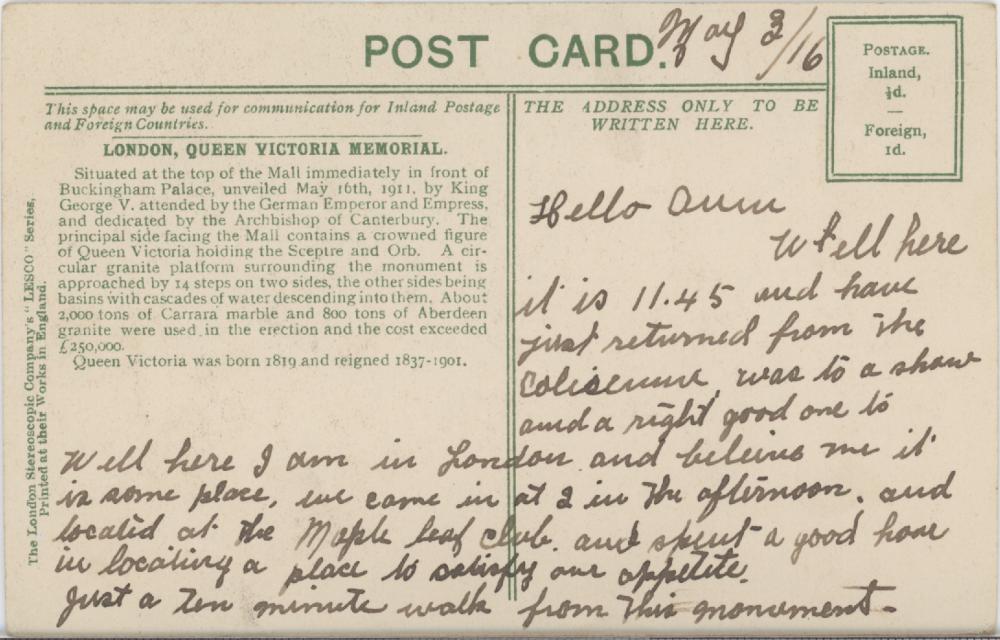 POST CARD.
May 3/16
POSTAGE.
Inland,
½d.
—
Foreign,
1d.
This space may be used for communication for Inland Postage
and Foreign Countries.
THE ADDRESS ONLY TO BE
WRITTEN HERE.
LONDON, QUEEN VICTORIA MEMORIAL.
Situated at the top of the Mall immediately in front of
Buckingham Palace, unveiled May 16th, 1911, by King
George V. attended by the German Emperor and Empress,
and dedicated by the Archbishop of Canterbury. The
principal side facing the Mall contains a crowned figure
of Queen Victoria holding the Sceptre and Orb. A cir-
cular granite platform surrounding the monument is
approached by 14 steps on two sides, the other sides being
basins with cascades of water descending into them. About
2,000 tons of Carrara marble and 800 tons of Aberdeen
granite were used in the erection and the cost exceeded
£250,000.
Queen Victoria was born 1819 and reigned 1837-1901.
The London Stereoscopic Company's "LESCO" Series,
Printed at their Works in England.
Hello
Well here
it is 11.45 and have
just returned from the
Coliseum, was to a show
and a right good one to
Well here I am in London and believe me it
is some place, we came in at 2 in the afternoon. and
located at the Maple leaf club. and spent a good hour
in locating a place to satisfy our appetite.
Just a ten minute walk from this monument-